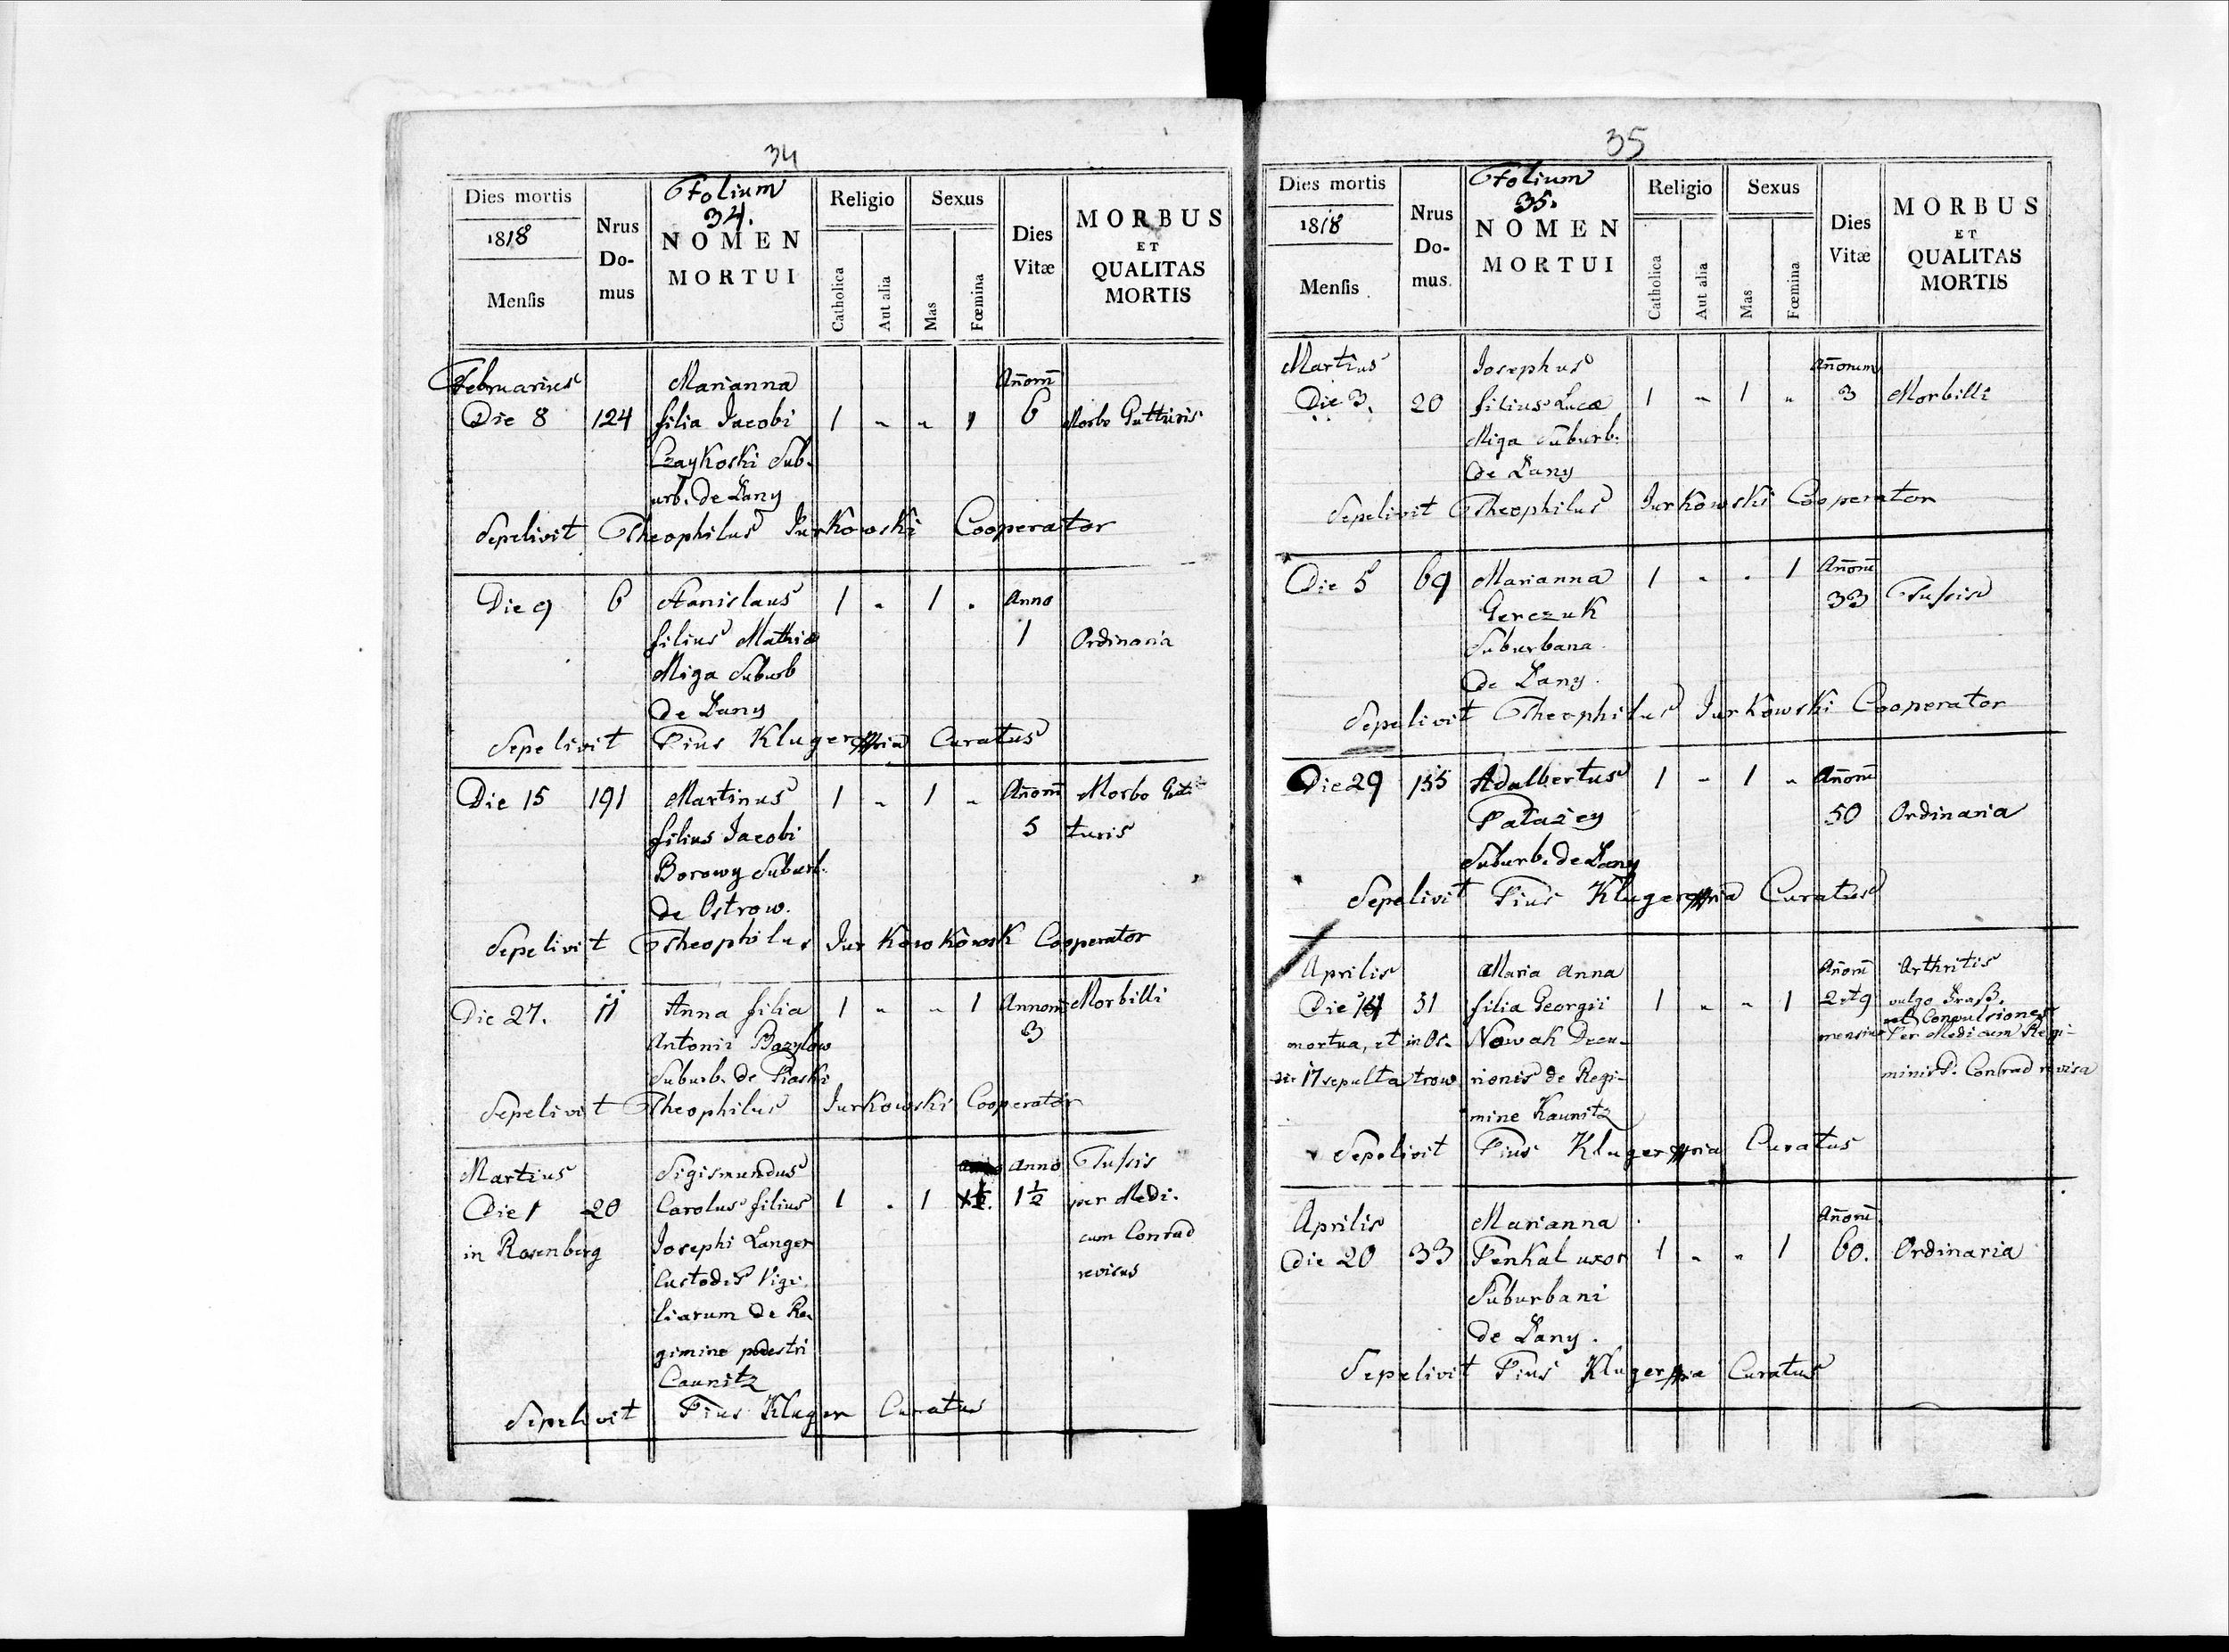 34
Dies mortis
1818
Mensis
Nrus Domus
Folium
34.
NOMEN
MORTUI
Religio
Catholica
Aut alia
Sexus
Mas
Fœmina
Dies
Vitæ
MORBUS
ET
QUALITAS
MORTIS
Februarius Marianna Añorum̄
Die 8 124 filia Jacobi 1 - - 1 6 Morbo Gutturis
Czaykoski Sub-
urb. de Łany
Sepelivit Theophilus Jurkowski Cooperator
Die 9 6 Stanislaus 1 - 1 - Anno
filius Mathiæ 1 Ordinaria
Miga Suburb
de Łany
Sepelivit Pius Kluger mpria Curatus
Die 15 191 Martinus 1 - 1 - Añorum̄ Morbo Gut-
filius Jacobi 5 turis
Borowy Suburb.
de Ostrow.
Sepelivit Theophilus Jurkowkowsk Cooperator
Die 27. 11 Anna filia 1 - - 1 Annorum̄ Morbilli
Antonii Bazylow 3
Suburb. de Piaski
Sepelivit Theophilus Jurkowski Cooperator
Martius Sigismundus Anno Tussis
Die 1 20 Carolus filius 1 - 1 1½. 1½ per Medi-
in Rosenberg Josephi Langer cum Conrad
Custodis Vigi- revisus
liarum de Re-
gimine pedestri
Caunitz
Sepelivit Pius Kluger Curatus
35
Dies mortis
1818
Mensis
Nrus Domus.
Folium
35.
NOMEN
MORTUI
Religio
Catholica
Aut alia
Sexus
Mas
Fœmina
Dies
Vitæ
MORBUS
ET
QUALITAS
MORTIS
Martius Josephus Añorum
Die 3. 20 filius Lucæ 1 - 1 - 3 Morbilli
Miga Suburb.
de Łany
Sepelivit Theophilus Jurkowski Cooperator
Die 5 69 Marianna 1 - - 1 Añorum̄
Gerczuk 33 Tussis
Suburbana
de Łany.
Sepelivit Theophilus Jurkowski Cooperator
Die 29 155 Adalbertus 1 - 1 - Añorum̄
Patazey 50 Ordinaria
Suburb. de Łany
Sepelivit Pius Kluger mpria Curatus
Aprilis Maria Anna Añorum̄ Arthritis
Die 31 filia Georgii 1 - - 1 2 et 9 vulgo
mortua, et in Os- Nowak Decu- mensium Convulsiones
die 17 sepulta trow rionis de Regi- Per Medicum Regi-
mine Kaunitz minis D. Conrad revisa
Sepelivit Pius Kluger mpria Curatus
Aprilis Marianna Añorum̄
Die 20 33 Penkal uxor 1 - - 1 60. Ordinaria
Suburbani
de Łany.
Sepelivit Pius Kluger mpria Curatus